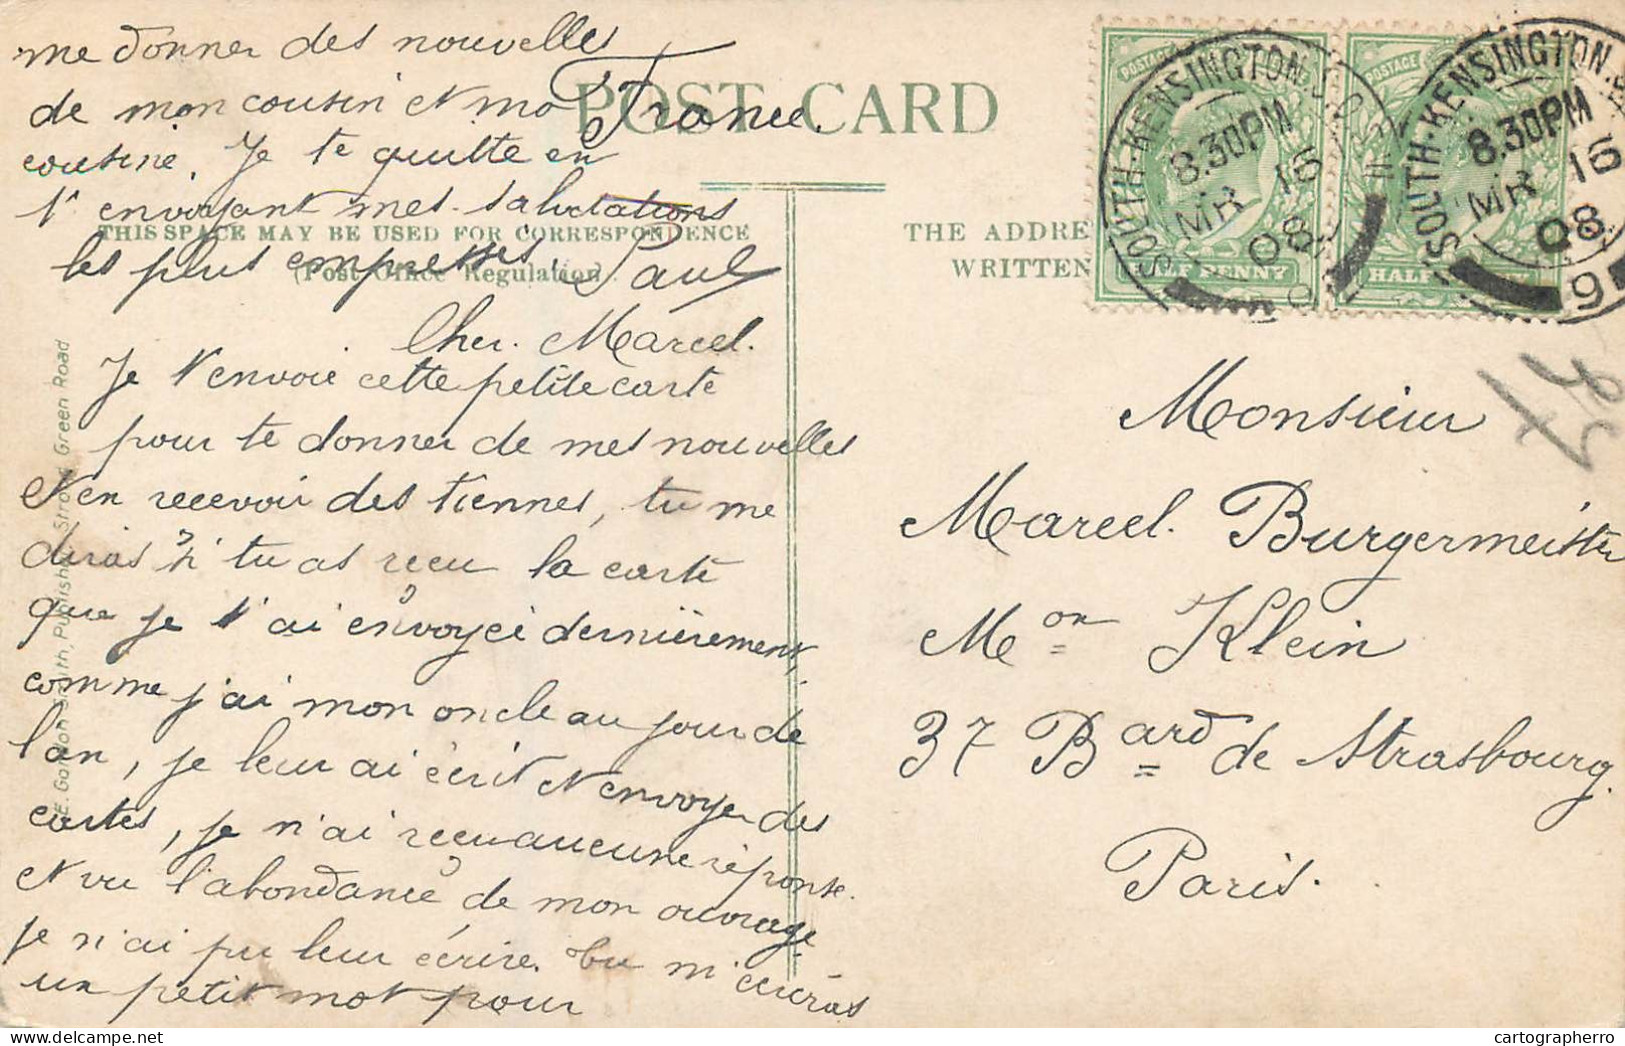 me donner des nouvelles
de mon cousin et ma
cousine. Je te quitte en
t'envoyant mes salutations
les plus empressés. Paul
POST CARD
France.
THIS SPACE MAY BE USED FOR CORRESPONDENCE
(Post Office Regulation)
THE ADDRE
WRITTEN
POSTAGE
HALF PENNY
SOUTH·KENSINGTON.
8.30PM
MR 16
08
POSTAGE
HALF
SOUTH·KENSINGTON.
8.30PM
MR 16
08
9
Cher. Marcel.
Je t'envoie cette petite carte
pour te donner de mes nouvelles
et en recevoir des tiennes, tu me
diras si tu as reçu la carte
que je t'ai envoyei dernièrement,
comme j'ai mon oncle au jour de
l'an, je leur ai écrit et envoyer des
cartes, je n'ai reçu aucune réponse.
et vu l'abondance de mon ouvrage
je n'ai pu leur écrire. tu m'écriras
un petit mot pour
E. Gordon Smith, Publisher, Stroud Green Road
Monsieur
Marcel. Burgermeister
Mon Klein
37 Bard de Strasbourg.
Paris.
cartographerro